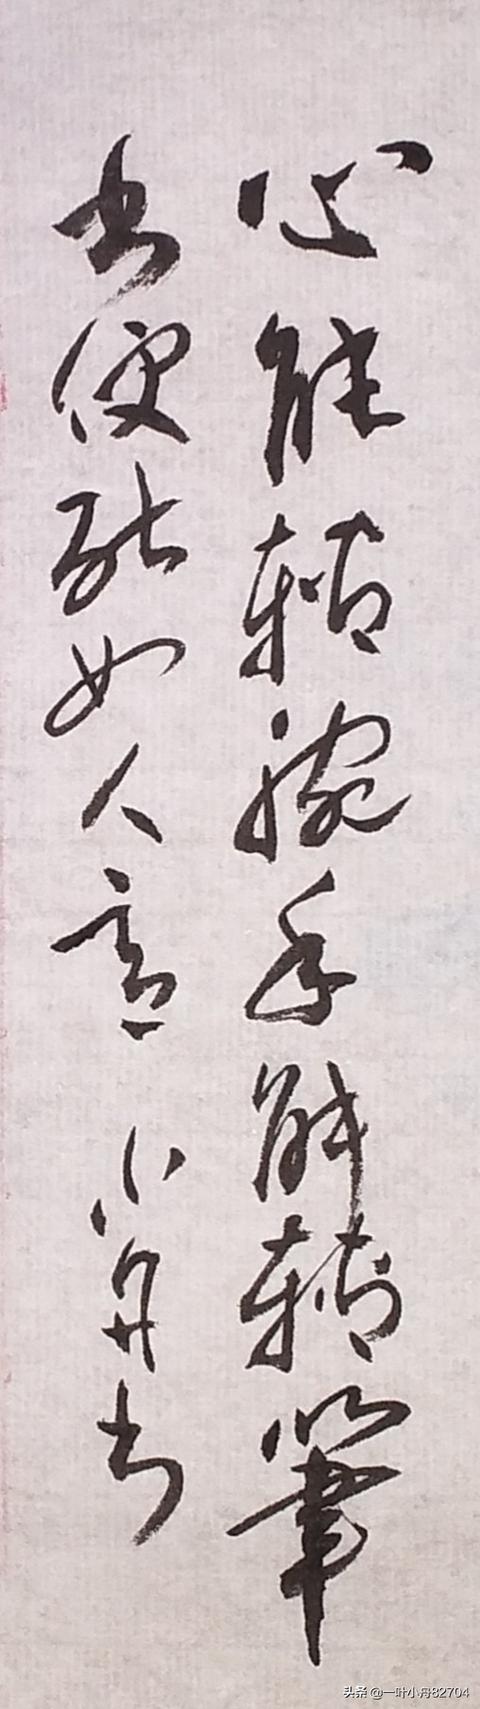 心能轉腕手能轉筆
书便能如人意 小舟书
头条 @一叶小舟82704